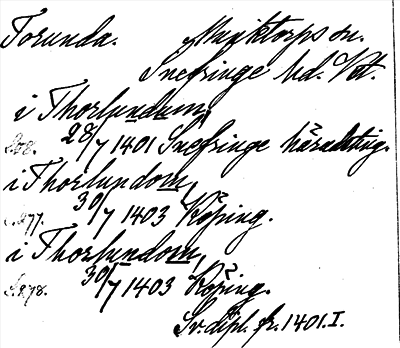 Torunda. Munktorps sn.
Snefringe hd. Vstm.
i Thorlundum,
208. 28/7 1401 Snefringe häradsting.
i Thorlundom,
S.277. 30/7 1403 Köping.
i Thorlundom,
S.278. 30/7 1403 Köping.
Sv. dipl. fr. 1401. I.